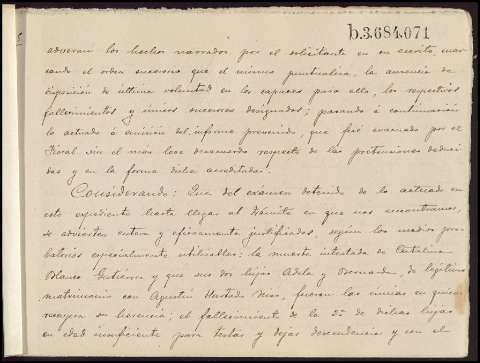 b.3.684.071
adveran los hechos narrados por el solicitante en su escrito, mar
cando el orden sucesivo que el mismo puntualiza, la ausencia de
disposición de última voluntad en los capaces para ello, los respectivos
fallecimientos y únicos sucesores designados; pasando á continuación
lo actuado á emisión del informe prevenido, que fué evacuado por el
Fiscal sin el más leve desacuerdo respecto de las pretensiones deduci
das y en la forma dicha acreditadas.
Considerando: Que del examen detenido de lo actuado en
este expediente hasta llegar al trámite en que nos encontramos,
se advierten entera y eficazmente justificadas, según los medios pro
batorios especialmente utilizables: la muerte intestada de Catalina
Blanco Gutiérrez y que sus dos hijas Adela y Bernarda, de legítimo
matrimonio con Agustín Hurtado, fueran las únicas en quienes
recayera su herencia; el fallecimiento de la 2ª de dichas hijas
en edad insuficiente para testar y dejar descendencia y con el